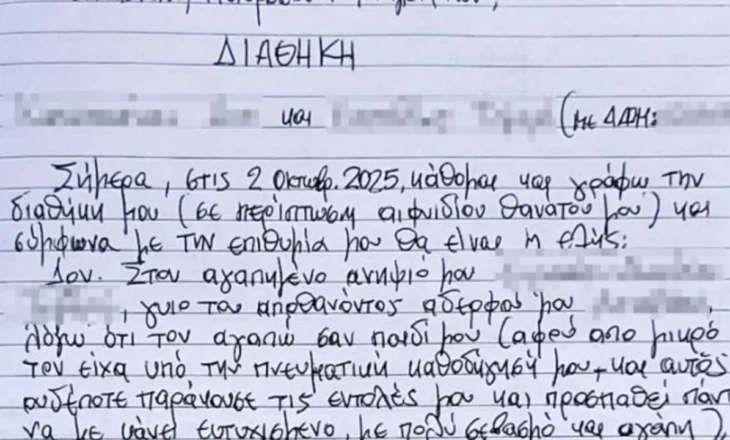 ΔΙΑΘΗΚΗ
και (με ΑΔΤ:
Σήμερα, στις 2 Οκτωβρ. 2025, κάθομαι και γράφω την
διαθήκη μου (σε περίπτωση αιφνιδίου θανάτου μου) και
σύμφωνα με την επιθυμία μου θα είναι η εξής:
1ον. Στον αγαπημένο ανηψιό μου
, γυιο του αποθανόντος αδερφού μου ,
λόγω ότι τον αγαπώ σαν παιδί μου (αφού από μικρό
τον είχα υπό την πνευματική καθοδήγησή μου, και αυτός
ουδέποτε παράκουσε τις εντολές μου και προσπαθεί πάντ
να με κάνει ευτυχισμένο, με πολύ σεβασμό και αγάπη),